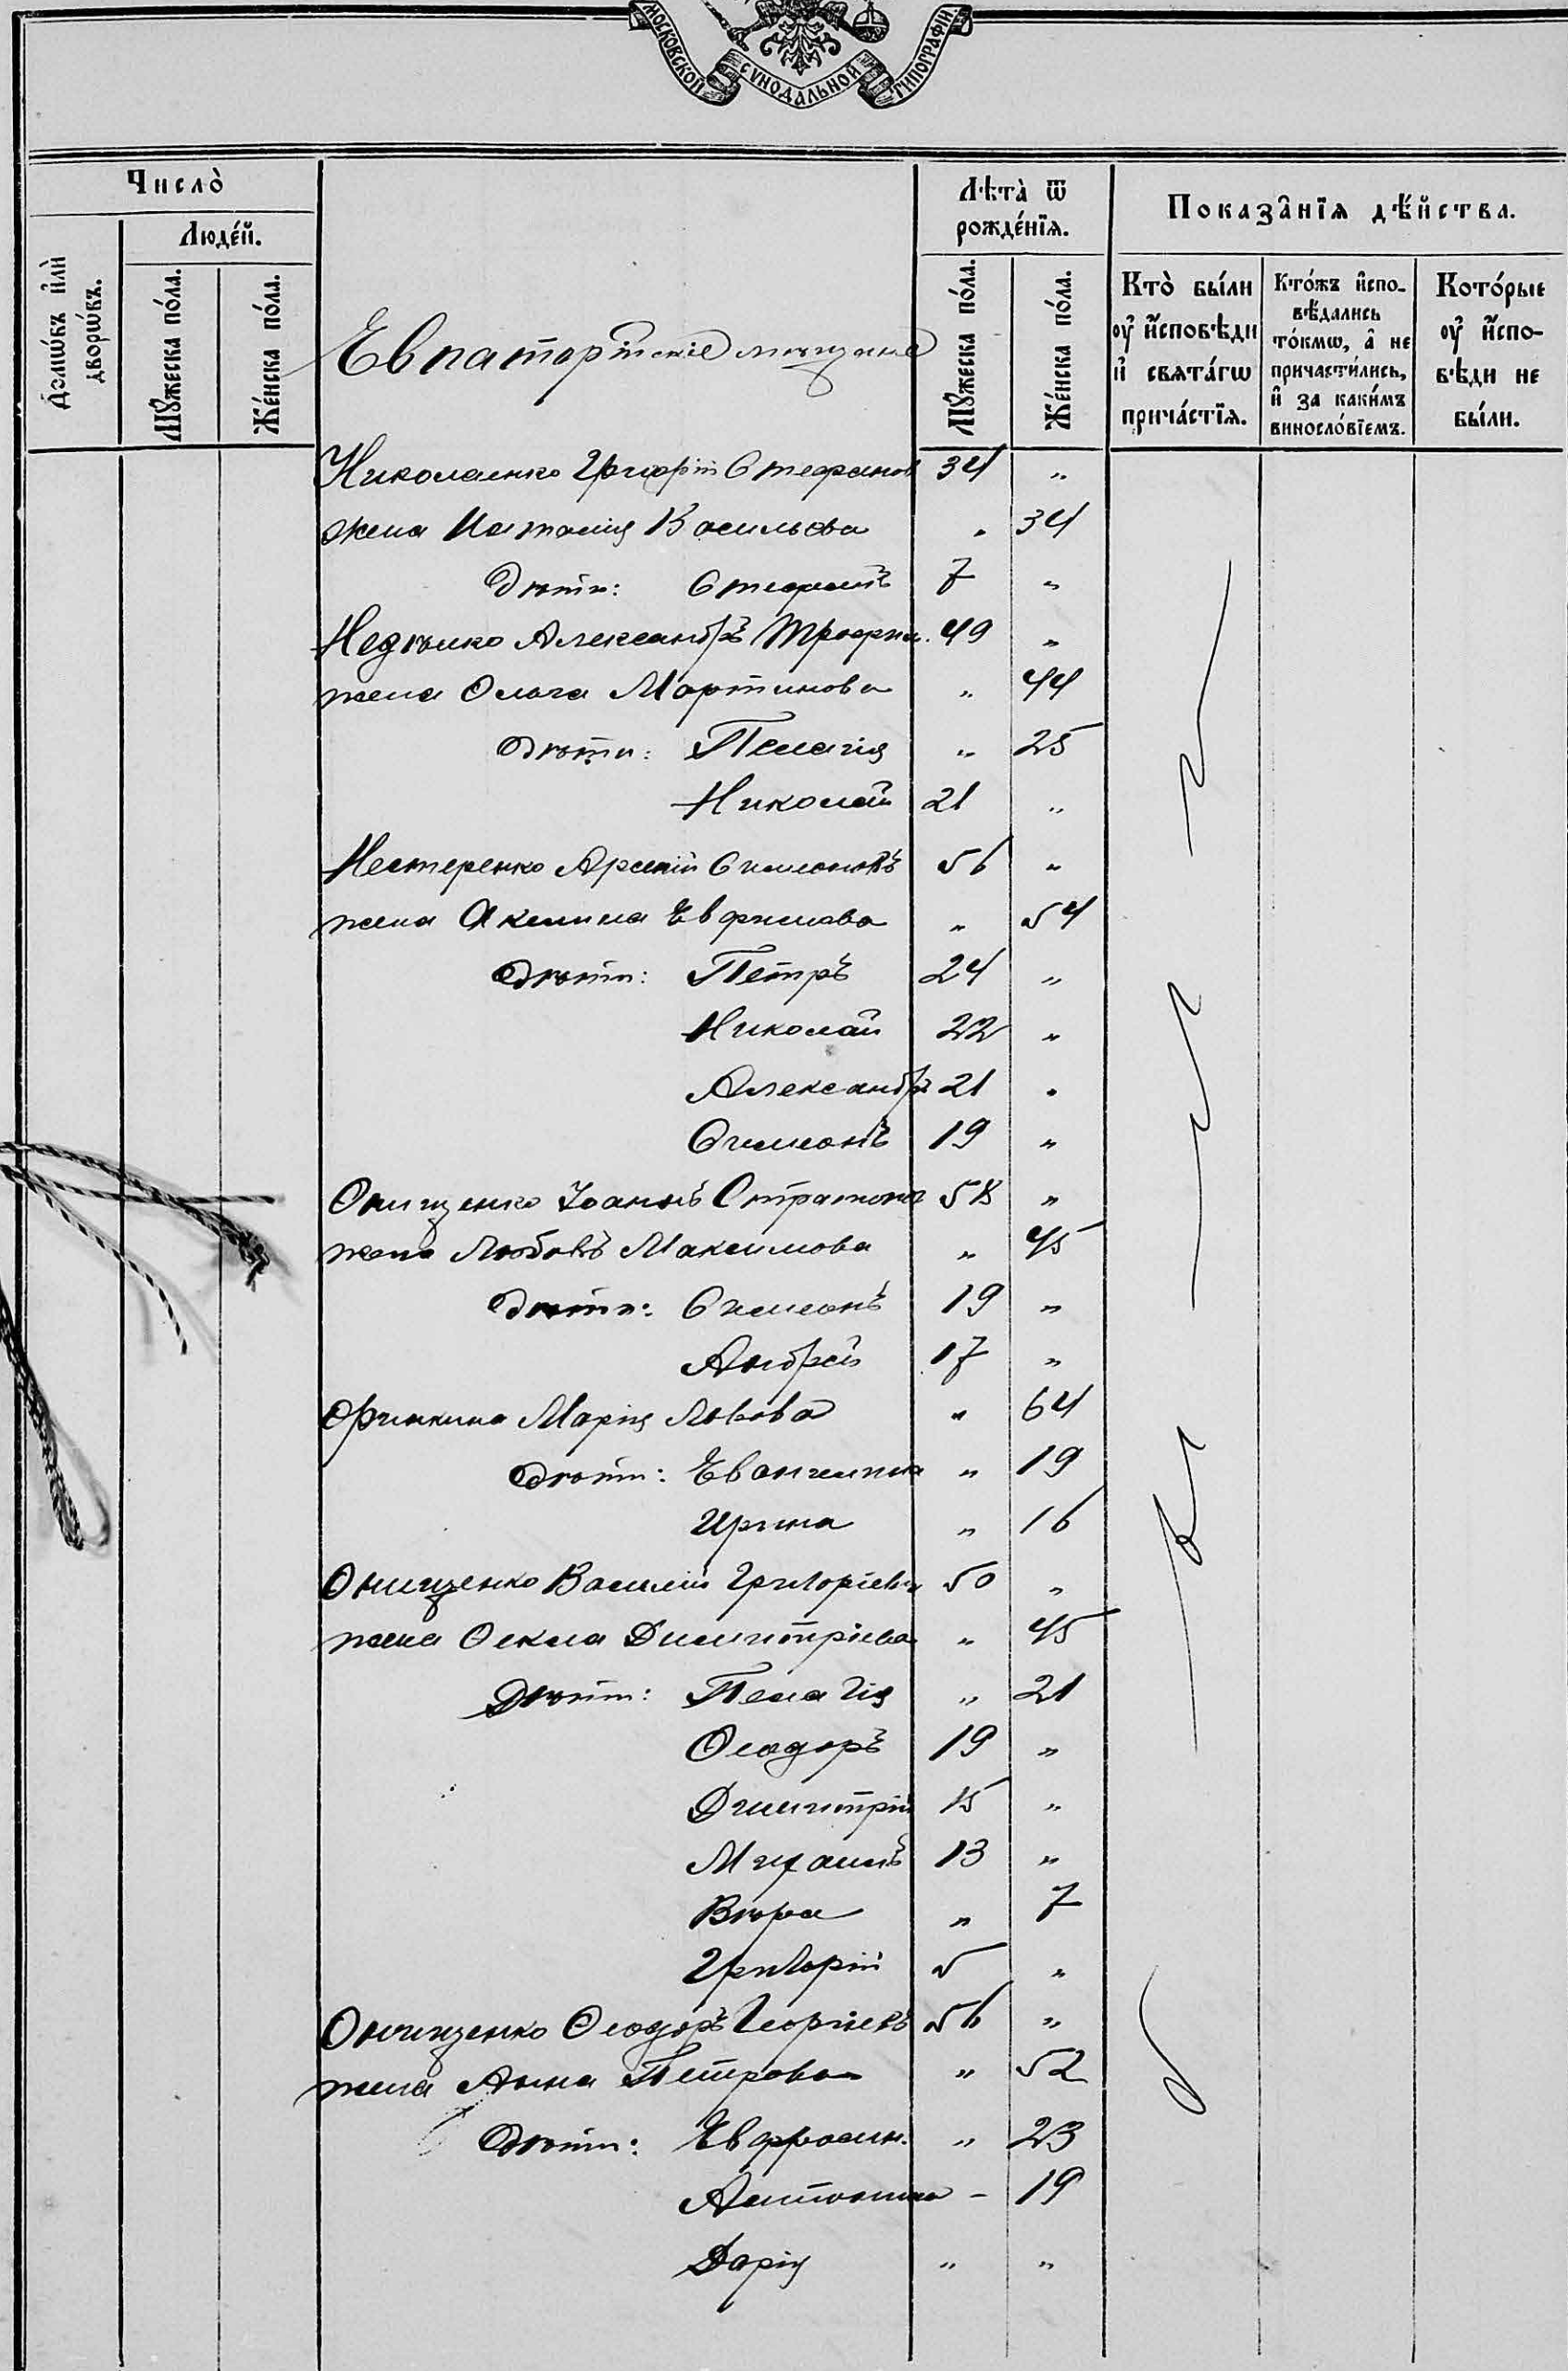 МОСКОВСКОЙ СѴНОДАЛЬНОЙ ТИПОГРАФІИ
Число̀
Домѡ́въ и҆лѝ дворѡ́въ.
Люде́й.
Мꙋ́жеска по́ла.
Же́нска по́ла.
Лѣта̀ ѿ рожде́нїѧ.
Мꙋ́жеска по́ла.
Же́нска по́ла.
Показа̑нїѧ дѣ́йства.
Кто̀ бы́ли ᲂу҆ и҆сповѣди и҆ свѧта́гѡ прича́стїѧ.
Кто́жъ и҆сповѣ́дались то́кмѡ, а҆ не причасти́лись, и҆ за каки́мъ винослоˊвїемъ.
Кото́рые ᲂу҆ и҆сповѣди не бы́ли.
Евпаторійскіе мѣщане
Николаенко Григорій Стефанов 34 „
жена Наталія Васильева „ 34
Дѣти: Стефанъ 7 „
Недѣлко Александръ Трофим. 49 „
жена Ольга Мартинова „ 44
Дѣти: Пелагія „ 25
Николай 21 „
Нестеренко Арсеній Симеоновъ 56 „
жена Акилина Евфимова „ 54
Дѣти: Петръ 24 „
Николай 22 „
Александръ 21 „
Симеонъ 19 „
Онищенко Іоаннъ 58 „
жена Любовь Максимова „ 45
Дѣти: Симеонъ 19 „
Андрей 17 „
Марія Львова „ 64
Дѣти: Евангелина „ 19
Ирина „ 16
Онищенко Василій Григоріевъ 50 „
жена Ѳекла Димитріева „ 45
Дѣти: Пелагія „ 21
Ѳеодоръ 19 „
Димитрій 15 „
Михаилъ 13 „
Вѣра „ 7
Григорій 5 „
Онищенко Ѳеодоръ Георгіевъ 56 „
жена Анна Петрова „ 52
Дѣти: Евфросин. „ 23
Антонина – 19
Дарія „ „